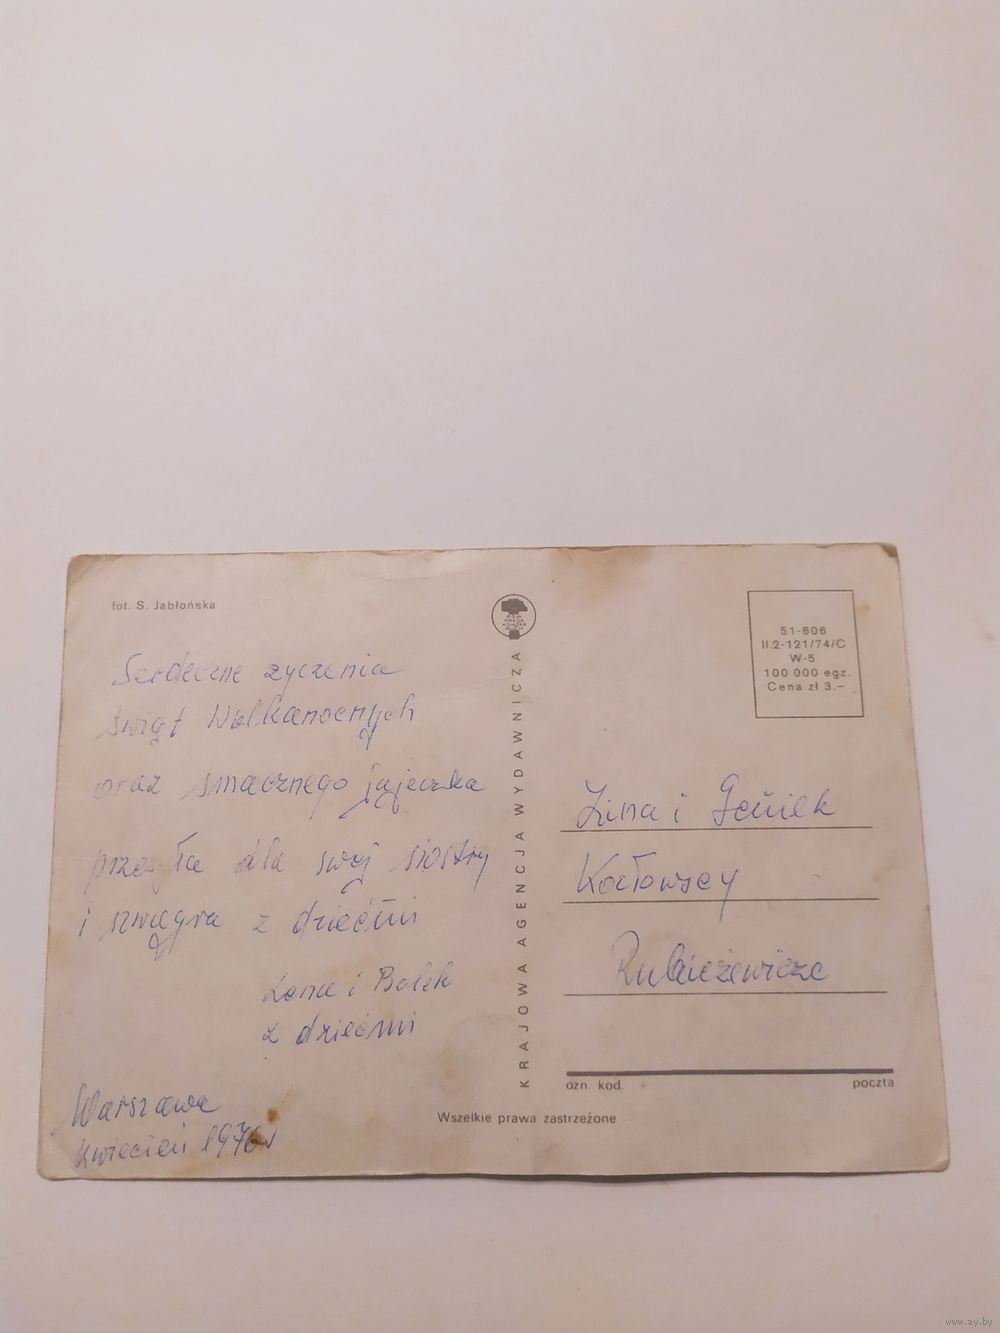 fot. S. Jabłońska
Serdeczne życzenia
świąt Wielkanocnych
oraz smacznego jajeczka
dla swej siostry
i szwagra z dziećmi
Lena i Bolek
z dziećmi
Warszawa
kwiecień 1976r
KRAJOWA AGENCJA WYDAWNICZA
RSW
PRASA
KSIĄŻKA
RUCH
51-606
II.2-121/74/C
W-5
100 000 egz.
Cena zł 3.–
Lina i Geniek
Kozłowscy
ozn. kod
poczta
Wszelkie prawa zastrzeżone
www.ay.by